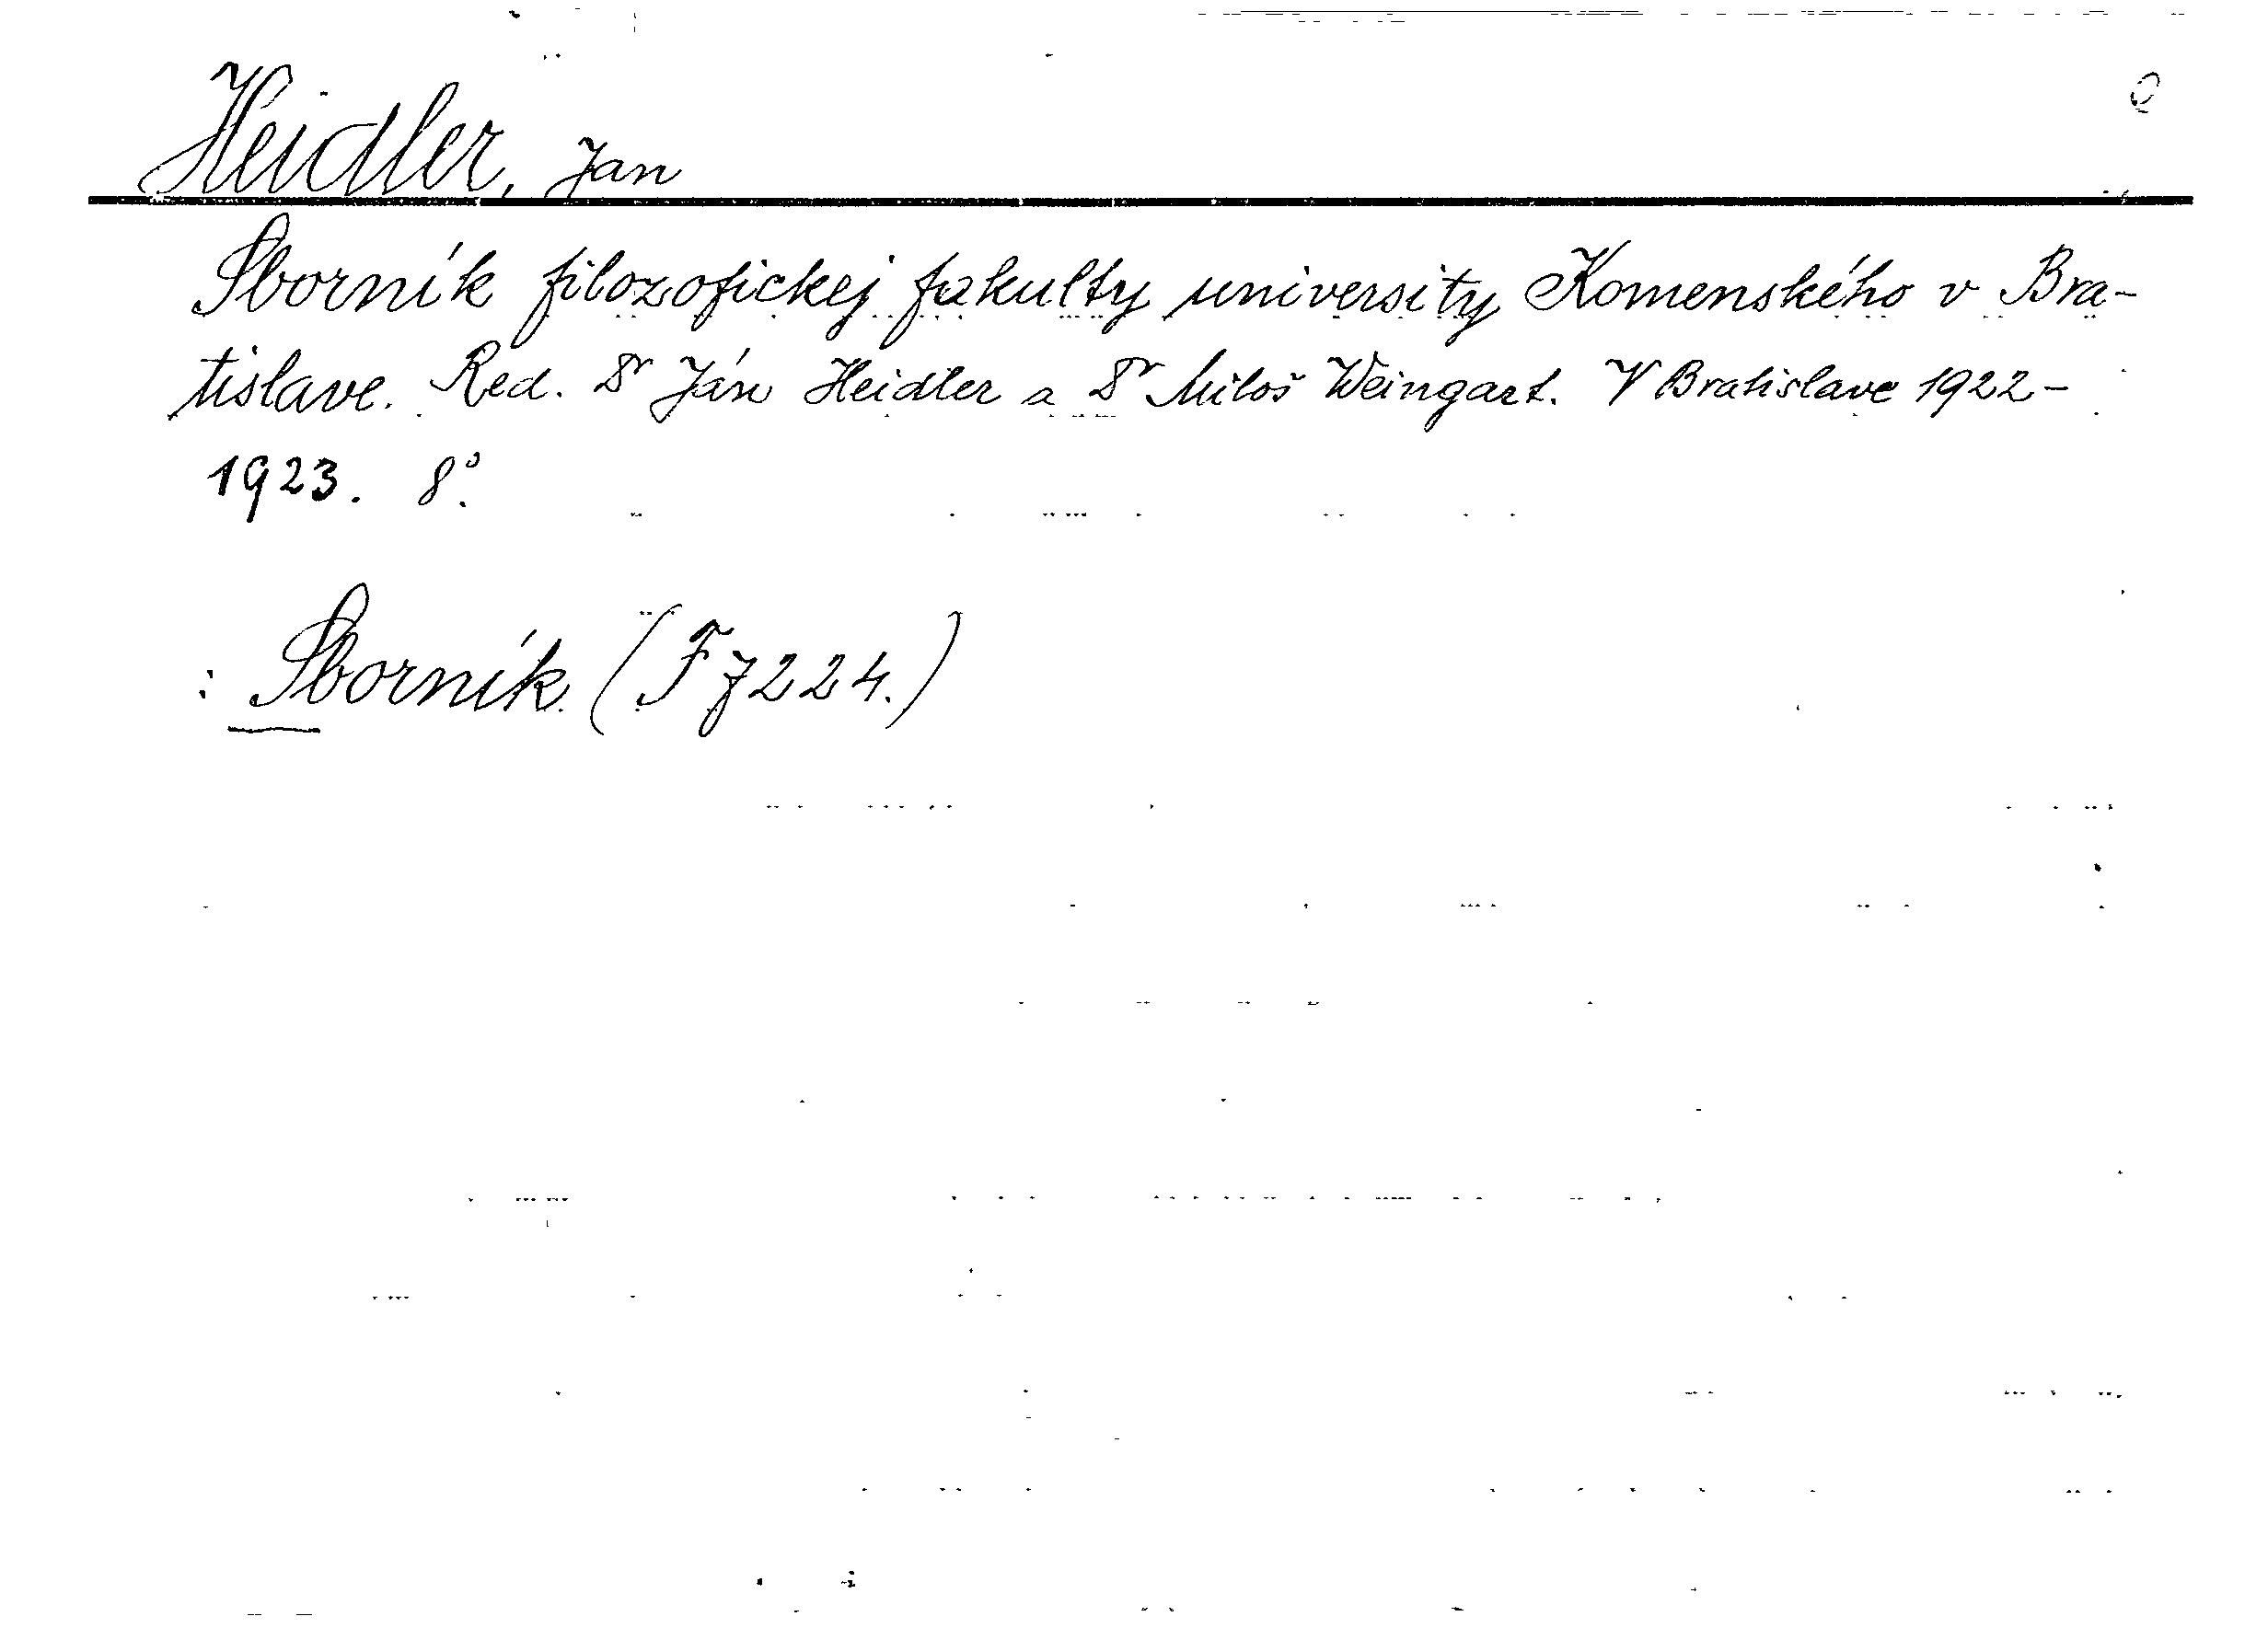 Heidler, Jan
Sborník filozofickej fakulty university Komenského v Bra-
tislave. Red. Dr Ján Heidler a Dr Miloš Weingart. V Bratislave 1922-
1923. 8°.
: Sborník (F 7224.)